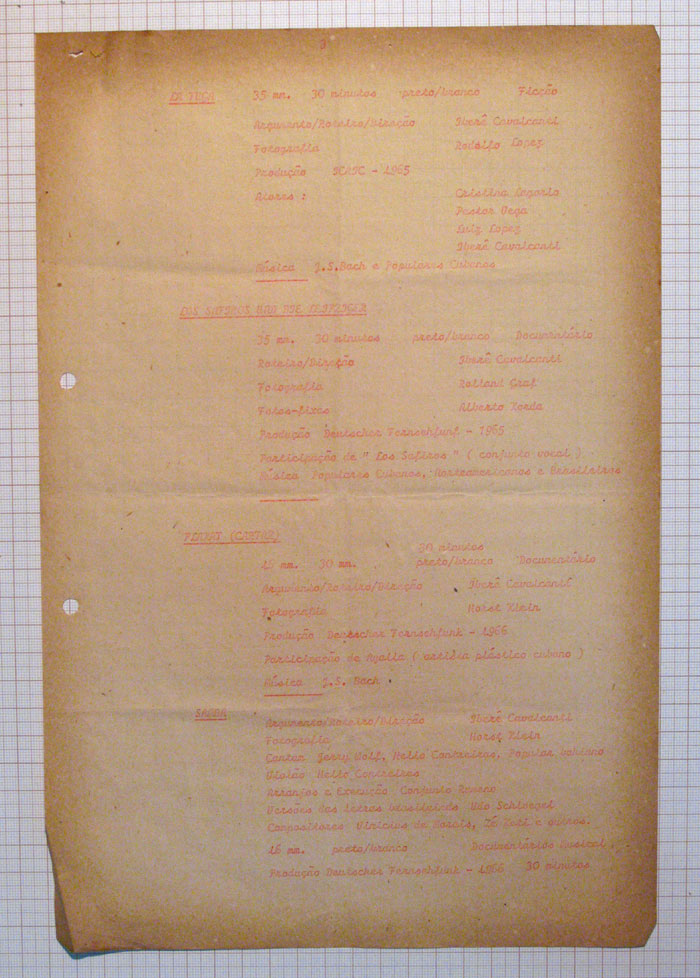 3
LA FUGA 35 mm. 30 minutos preto/branco Ficção
Argumento/Roteiro/Direção Iberê Cavalcanti
Fotografia Rodolfo Lopez
Produção ICAIC - 1965
Atores : Cristina
Pastor Vega
Luiz Lopez
Iberê Cavalcanti
Música J.S.Bach e Populares Cubanos
LOS SAFIROS
35 mm. 30 minutos preto/branco Documentário
Roteiro/Direção Iberê Cavalcanti
Fotografia Rolland Graf
Fotos-fixas Alberto Korda
Produção Deutscher Fernsehfunf - 1965
Participação de " Los Safiros " ( conjunto vocal )
Música Populares Cubanos, Norteamericanos e Brasileiros
(CANTOR)
30 minutos
16 mm. 30 mm. preto/branco Documentário
Argumento/Roteiro/Direção Iberê Cavalcanti
Fotografia Horst Klein
Produção Deutscher Fernsehfunk - 1966
Participação de Ayalla ( artista plástico cubano )
Música J.S. Bach.
SAMBA Argumento/Roteiro/Direção Iberê Cavalcanti
Fotografia Horst Klein
Cantam Jerry Wolf, Hello Contreiras, Popular bahiano
Violão Hello Contreiras
Arranjos e Execução Conjunto
Versões dos textos Udo Schloegel
Compositores Vinicius de Morais, Zé Keti e outros.
16 mm. preto/branco Documentários Musical.
Produção Deutscher Fernsehfunk - 1966 30 minutos